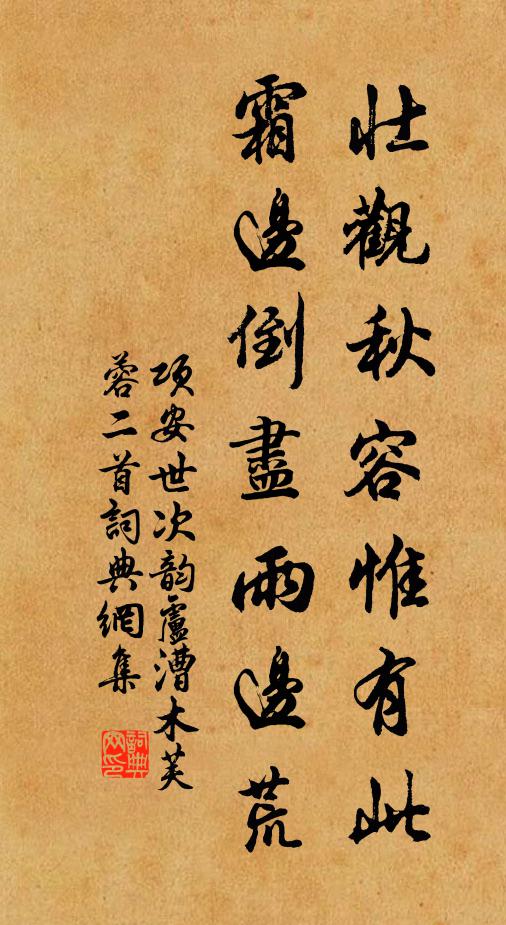 壯觀秋容惟有此
霜邊倒盡雨邊荒
項安世次韵盧漕木芙
蓉二首詞典網集
詞典
网印